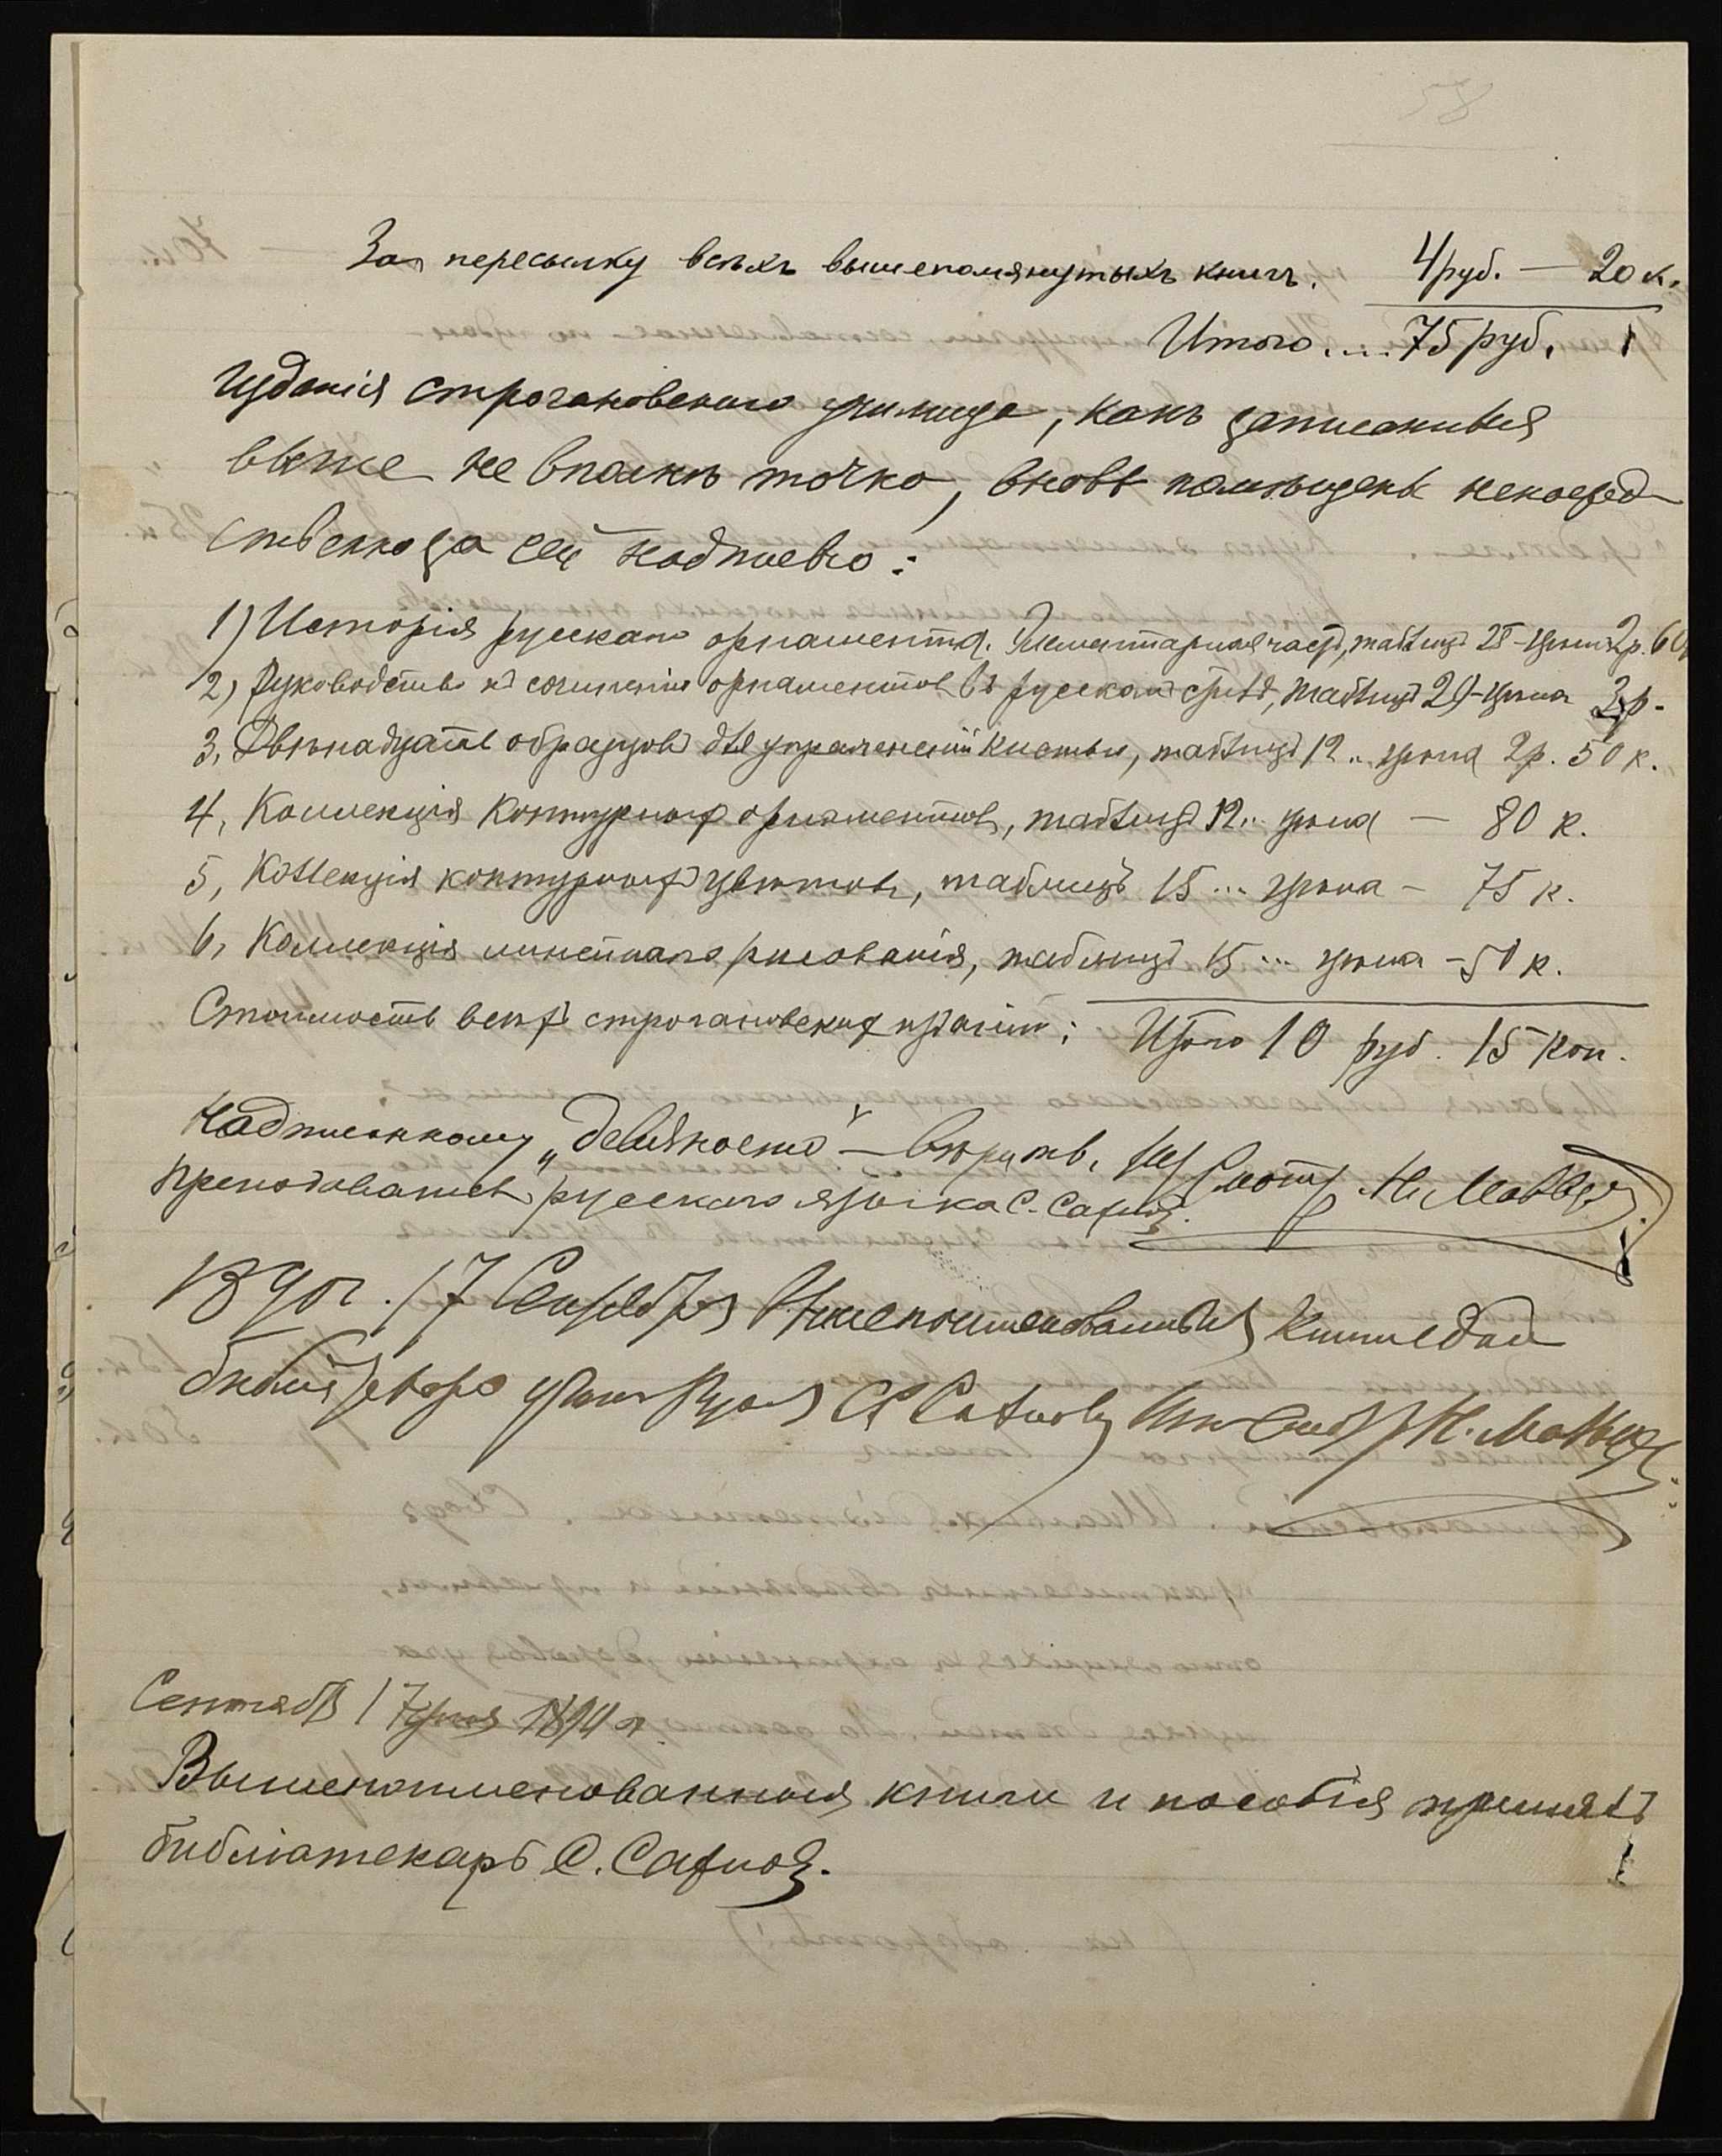 58
За пересылку всѣхъ вышепомянутыхъ книгъ. 4 руб. — 20 к.
Итого.... 75 руб.
Изданія строгановскаго училища, какъ записанныя
выше не вполнѣ точно, вновь помѣщены непосред-
ственно за сей надписью:
1) Исторія русскаго орнамента. Элементарная часть, таблицъ 28 – цѣна 2 р. 60
2) Руководство къ сочиненію орнаментовъ въ русскомъ стилѣ, таблицъ 29 – цѣна 3 р.
3, Двѣнадцать образцовъ для упражненій кистью, таблицъ 12 .. цѣна 2 р. 50 к.
4, Коллекція контурныхъ орнаментовъ, таблицъ 12 .. цѣна — 80 к.
5, Коллекція контурныхъ цвѣтовъ, таблицъ 15 ... цѣна – 75 к.
6, Коллекція линейнаго рисованія, таблицъ 15 ... цѣна – 50 к.
Стоимость всѣхъ строгановскихъ изданій: Итого 10 руб. 15 коп.
Надписанному „девяносто" – вѣрить. Н. Матвѣ
Преподаватель русскаго языка С. Сафнов.
1890 г. 17 Сентября книги сдал
С. Н. Матвѣ
Сентября 17 дня 1890 г.
Вышепоименованныя книги и пособія принялъ
библіотекарь С. Сафнов.